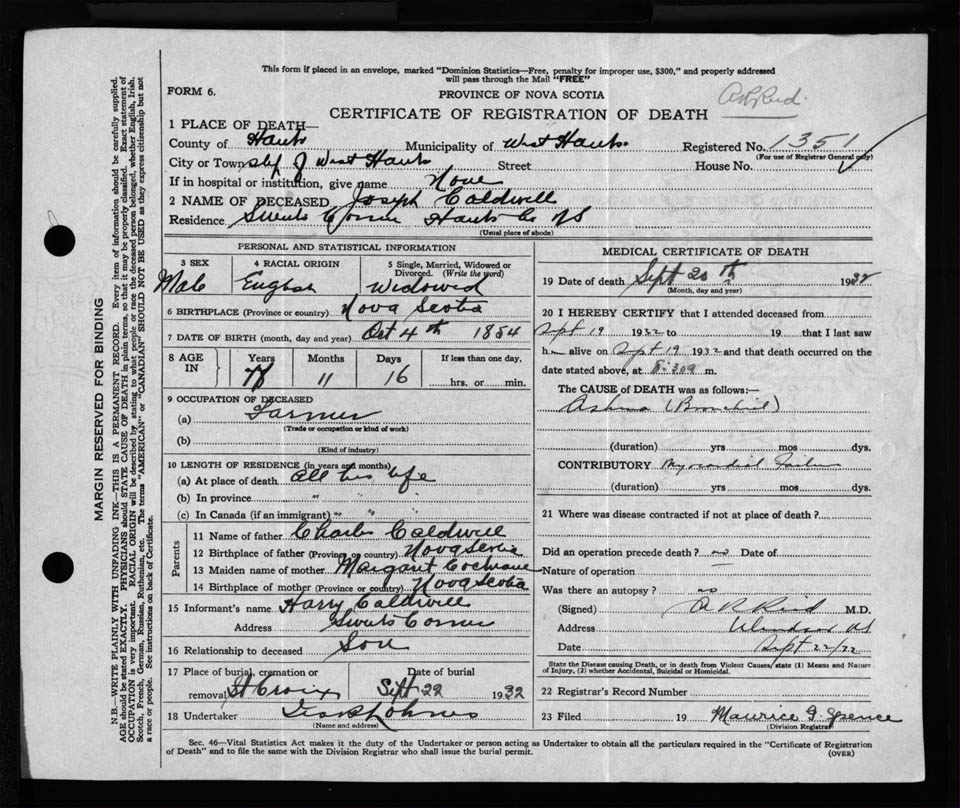 This form if placed in an envelope, marked "Dominion Statistics—Free, penalty for improper use, $300," and properly addressed
will pass through the Mail "FREE"
FORM 6.
PROVINCE OF NOVA SCOTIA
CERTIFICATE OF REGISTRATION OF DEATH
1 PLACE OF DEATH—
County of Hants Municipality of West Hants Registered No. 1351
(For use of Registrar General only)
City or Town of West Hants Street House No.
If in hospital or institution, give name None
2 NAME OF DECEASED Joseph Caldwell
Residence Swets Corner Hants Co NS
(Usual place of abode)
PERSONAL AND STATISTICAL INFORMATION
3 SEX 4 RACIAL ORIGIN 5 Single, Married, Widowed or Divorced. (Write the word)
Male English Widowed
6 BIRTHPLACE (Province or country) Nova Scotia
7 DATE OF BIRTH (month, day and year) Oct 4th 1854
8 AGE IN Years Months Days If less than one day,
11 16 hrs. or min.
9 OCCUPATION OF DECEASED
(a) Farmer
(Trade or occupation or kind of work)
(b)
(Kind of industry)
10 LENGTH OF RESIDENCE (in years and months)
(a) At place of death all his life
(b) In province "
(c) In Canada (if an immigrant) " "
Parents
11 Name of father Charles Caldwell
12 Birthplace of father (Province or country) Nova Scotia
13 Maiden name of mother Margaret Cochrane
14 Birthplace of mother (Province or country) Nova Scotia
15 Informant's name Harry Caldwell
Address Swets Corner
16 Relationship to deceased Son
17 Place of burial, cremation or Date of burial
removal St Croix Sept 22 1932
18 Undertaker
(Name and address)
MEDICAL CERTIFICATE OF DEATH
19 Date of death Sept 20th 1932
(Month, day and year)
20 I HEREBY CERTIFY that I attended deceased from
Sept 19 1932 to 19 that I last saw
h alive on Sept 19 1932 and that death occurred on the
date stated above, at 8:30 a m.
The CAUSE OF DEATH was as follows:—
Asthma (Bronchial)
(duration) yrs mos dys.
CONTRIBUTORY Myocardial Failure
(duration) yrs. mos dys.
21 Where was disease contracted if not at place of death?
Did an operation precede death? no Date of
Nature of operation —
Was there an autopsy? no
(Signed) A R Reid M.D.
Address Windsor NS
Date Sept 22/32
State the Disease causing Death, or in death from Violent Causes, state (1) Means and Nature
of Injury, (2) whether Accidental, Suicidal or Homicidal.
22 Registrar's Record Number
23 Filed 19 Maurice G. Spence
(Division Registrar)
Sec. 46—Vital Statistics Act makes it the duty of the Undertaker or person acting as Undertaker to obtain all the particulars required in the "Certificate of Registration
of Death" and to file the same with the Division Registrar who shall issue the burial permit. (OVER)
MARGIN RESERVED FOR BINDING
N.B.—WRITE PLAINLY WITH UNFADING INK—THIS IS A PERMANENT RECORD. Every item of information should be carefully supplied.
AGE should be stated EXACTLY. PHYSICIANS should STATE CAUSE OF DEATH in plain terms, so that it may be properly classified. Exact statement of
OCCUPATION is very important. RACIAL ORIGIN will be described by stating to what people or race the deceased person belonged, whether English, Irish,
Scotch, French, German, Russian, Ruthenian, etc. The terms "AMERICAN" or "CANADIAN" SHOULD NOT BE USED as they express citizenship but not
a race or people. See instructions on back of Certificate.